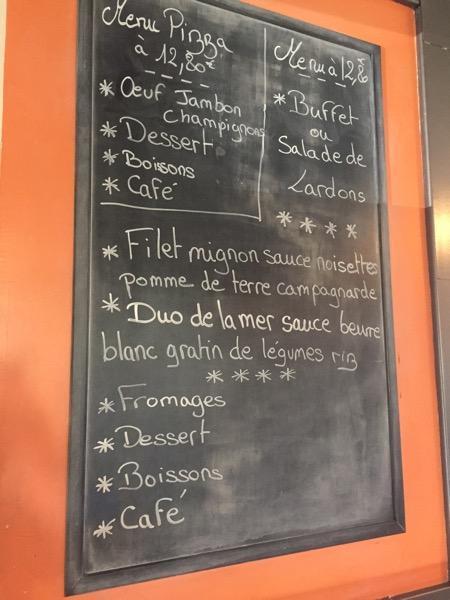 Menu Pizza
à 12,80€
* Oeuf Jambon
Champignons
* Dessert
* Boissons
* Café
Menu à 12,80
* Buffet
ou
Salade de
Lardons
* * * *
* Filet mignon sauce noisettes
pomme de terre campagnarde
* Duo de la mer sauce beurre
blanc gratin de légumes riz
* * * *
* Fromages
* Dessert
* Boissons
* Café